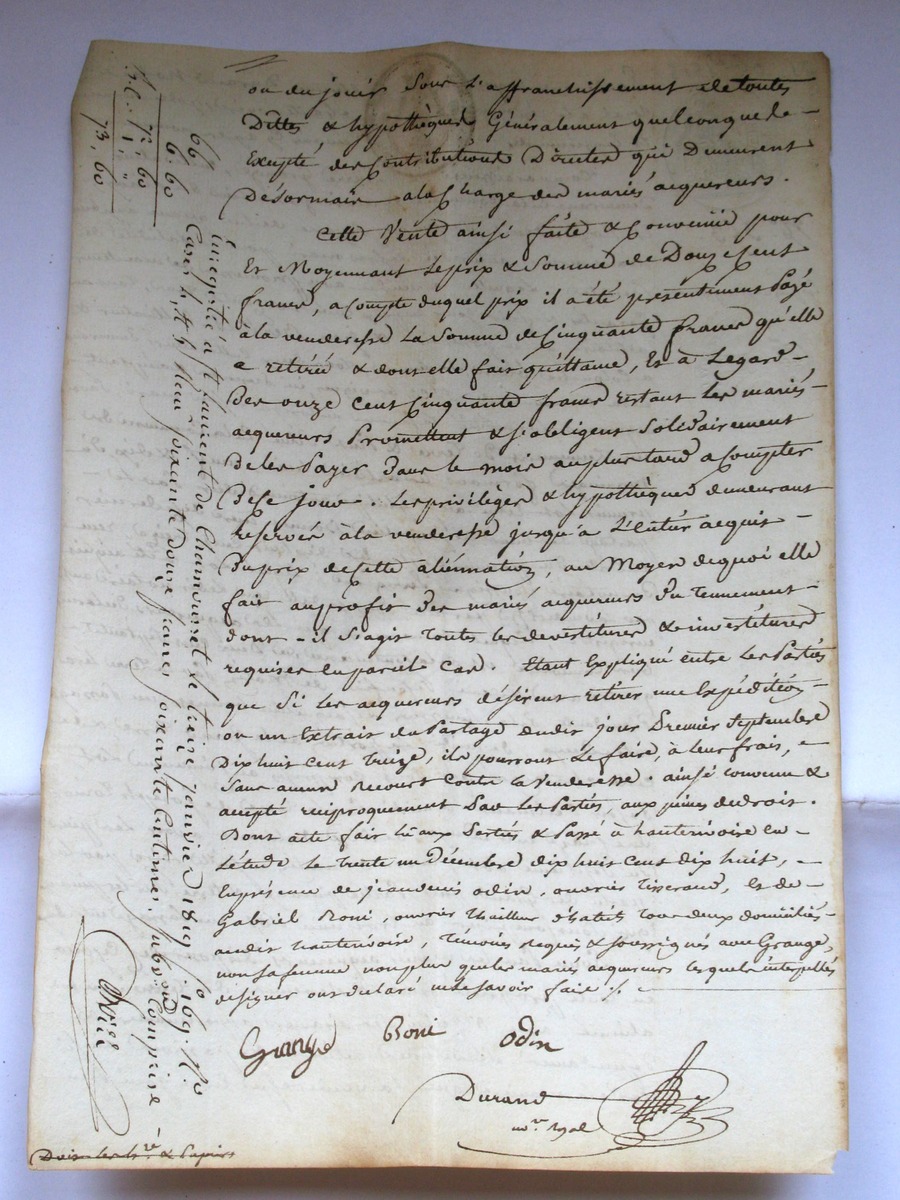 ou du jouir sous l'affranchissement de toutes
Dettes & hypothèques Généralement quelconque de
Excepté des Contributions Directes qui Demeurent
Désormais a la Charge des mariés acquereurs.
Cette Vente ainsi faite & Convenüe pour
Et Moyennant Le prix & Somme de Douze Cent
francs, a Compte duquel prix il a été présentement Payé
à la venderesse La Somme de Cinquante francs qu'elle
a retiré & dont elle fait quittance, Et à Legard
Des onze Cent Cinquante francs restant Les mariés
acquereurs Promettent & s'obligent Solidairement
De les Payer Dans le mois au plus tard a Compter
De Ce jour. Les privilèges & hypothèques demeurant
reservés à la venderesse jusqu'à L'entier acquit
Du prix de Cette aliénnation, au Moyen de quoi elle
fait au profit Des mariés acquereurs Du Tennement
dont il S'agit Toutes les devestitures & investitures
requises En pareil Cas. Etant Expliqué entre Les Parties
que Si Les acquereurs désirent retirer une Expédition
ou un Extrait du Partage dudit jour Premier Septembre
Dix huit Cent Treize, ils pourront Le faire, à leur frais,
Sans aucun recourt Contre la Venderesse. ainsi Convenu &
accepté réciproquement Par Les Parties, aux peines de droit.
Dont acte fait Lu aux Parties & Passé à hauterivoire En
L'étude Le Trente un Décembre dix huit Cent dix huit,
En présence de jean denis odin, ouvrier Tisserand, Et de
Gabriel Boni, ouvrier Thailleur d'habits Tous deux domiciliés
audit hauterivoire, Témoins Requis & Soussignés avec Grange,
non sa femme non plus que les mariés acquereurs lesquels interpellés
de signer ont déclaré ne le Savoir faire ./.
Grange Boni odin
Durand
no.re Royal
Enregistré à St Laurent de Chamousset le treize janvier 1819. fo 169. Ro
Cases 4, Reçu Soixante douze francs soixante Centimes, Subvon Comprise
66
6.60
72.60
1. "
73,60